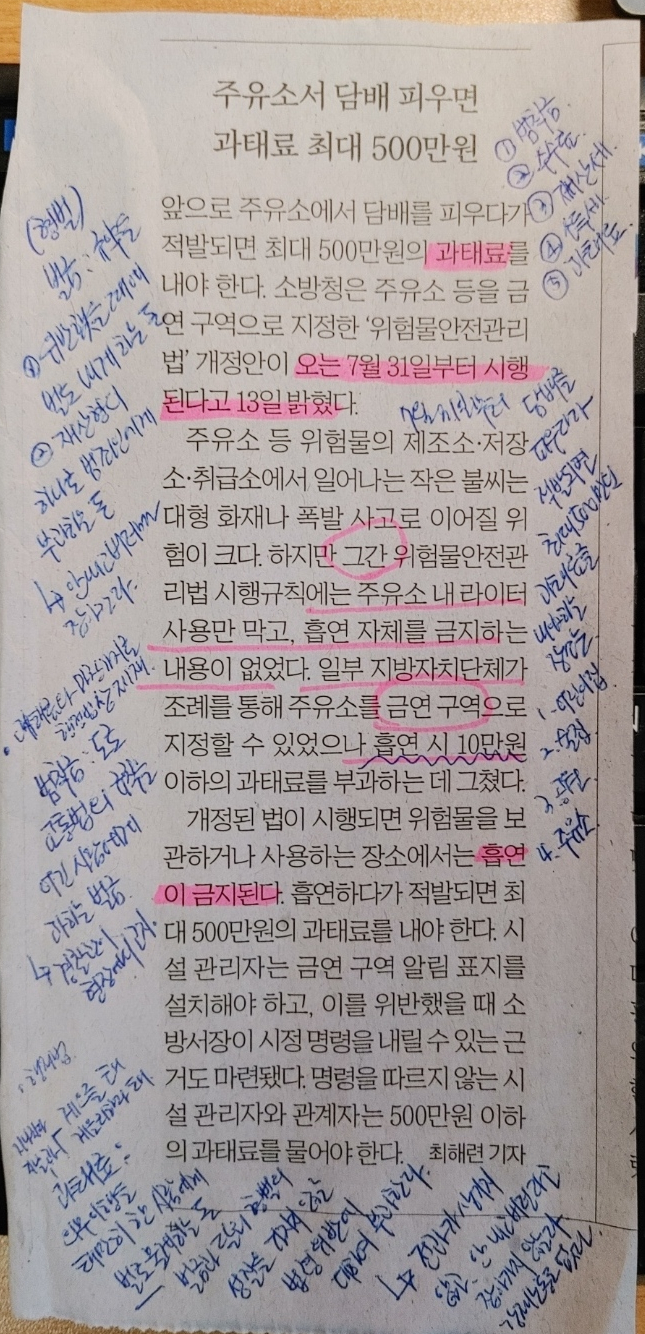 주유소서 담배 피우면
과태료 최대 500만원
앞으로 주유소에서 담배를 피우다가
적발되면 최대 500만원의 과태료를
내야 한다. 소방청은 주유소 등을 금
연 구역으로 지정한 ‘위험물안전관리
법’ 개정안이 오는 7월 31일부터 시행
된다고 13일 밝혔다.
주유소 등 위험물의 제조소·저장
소·취급소에서 일어나는 작은 불씨는
대형 화재나 폭발 사고로 이어질 위
험이 크다. 하지만 그간 위험물안전관
리법 시행규칙에는 주유소 내 라이터
사용만 막고, 흡연 자체를 금지하는
내용이 없었다. 일부 지방자치단체가
조례를 통해 주유소를 금연 구역으로
지정할 수 있었으나 흡연 시 10만원
이하의 과태료를 부과하는 데 그쳤다.
개정된 법이 시행되면 위험물을 보
관하거나 사용하는 장소에서는 흡연
이 금지된다. 흡연하다가 적발되면 최
대 500만원의 과태료를 내야 한다. 시
설 관리자는 금연 구역 알림 표지를
설치해야 하고, 이를 위반했을 때 소
방서장이 시정 명령을 내릴 수 있는 근
거도 마련됐다. 명령을 따르지 않는 시
설 관리자와 관계자는 500만원 이하
의 과태료를 물어야 한다. 최해련 기자
① 범칙금.
②
③ 재산세.
④
⑤ 과태료.
담배를
피우다가
적발되면
최대 500만원
과태료를
내야하는
장소는.
1. 어린이집
2.
3.
4. 주유소.
(형벌)
벌금: 규약을
위반했을 때에
벌로 내게 하는 돈
재산형의
하나로 범죄인에게
부과하는 돈
범칙금: 도로
교통법의 규칙을
어긴 사람에게
과하는 벌금.
과태료:
의무 이행을
태만히 한 사람에게
벌로 물게하는 돈
벌금과 달리 형벌의
성질을 가지지 않는
법령 위반에
대하여 부과한다.